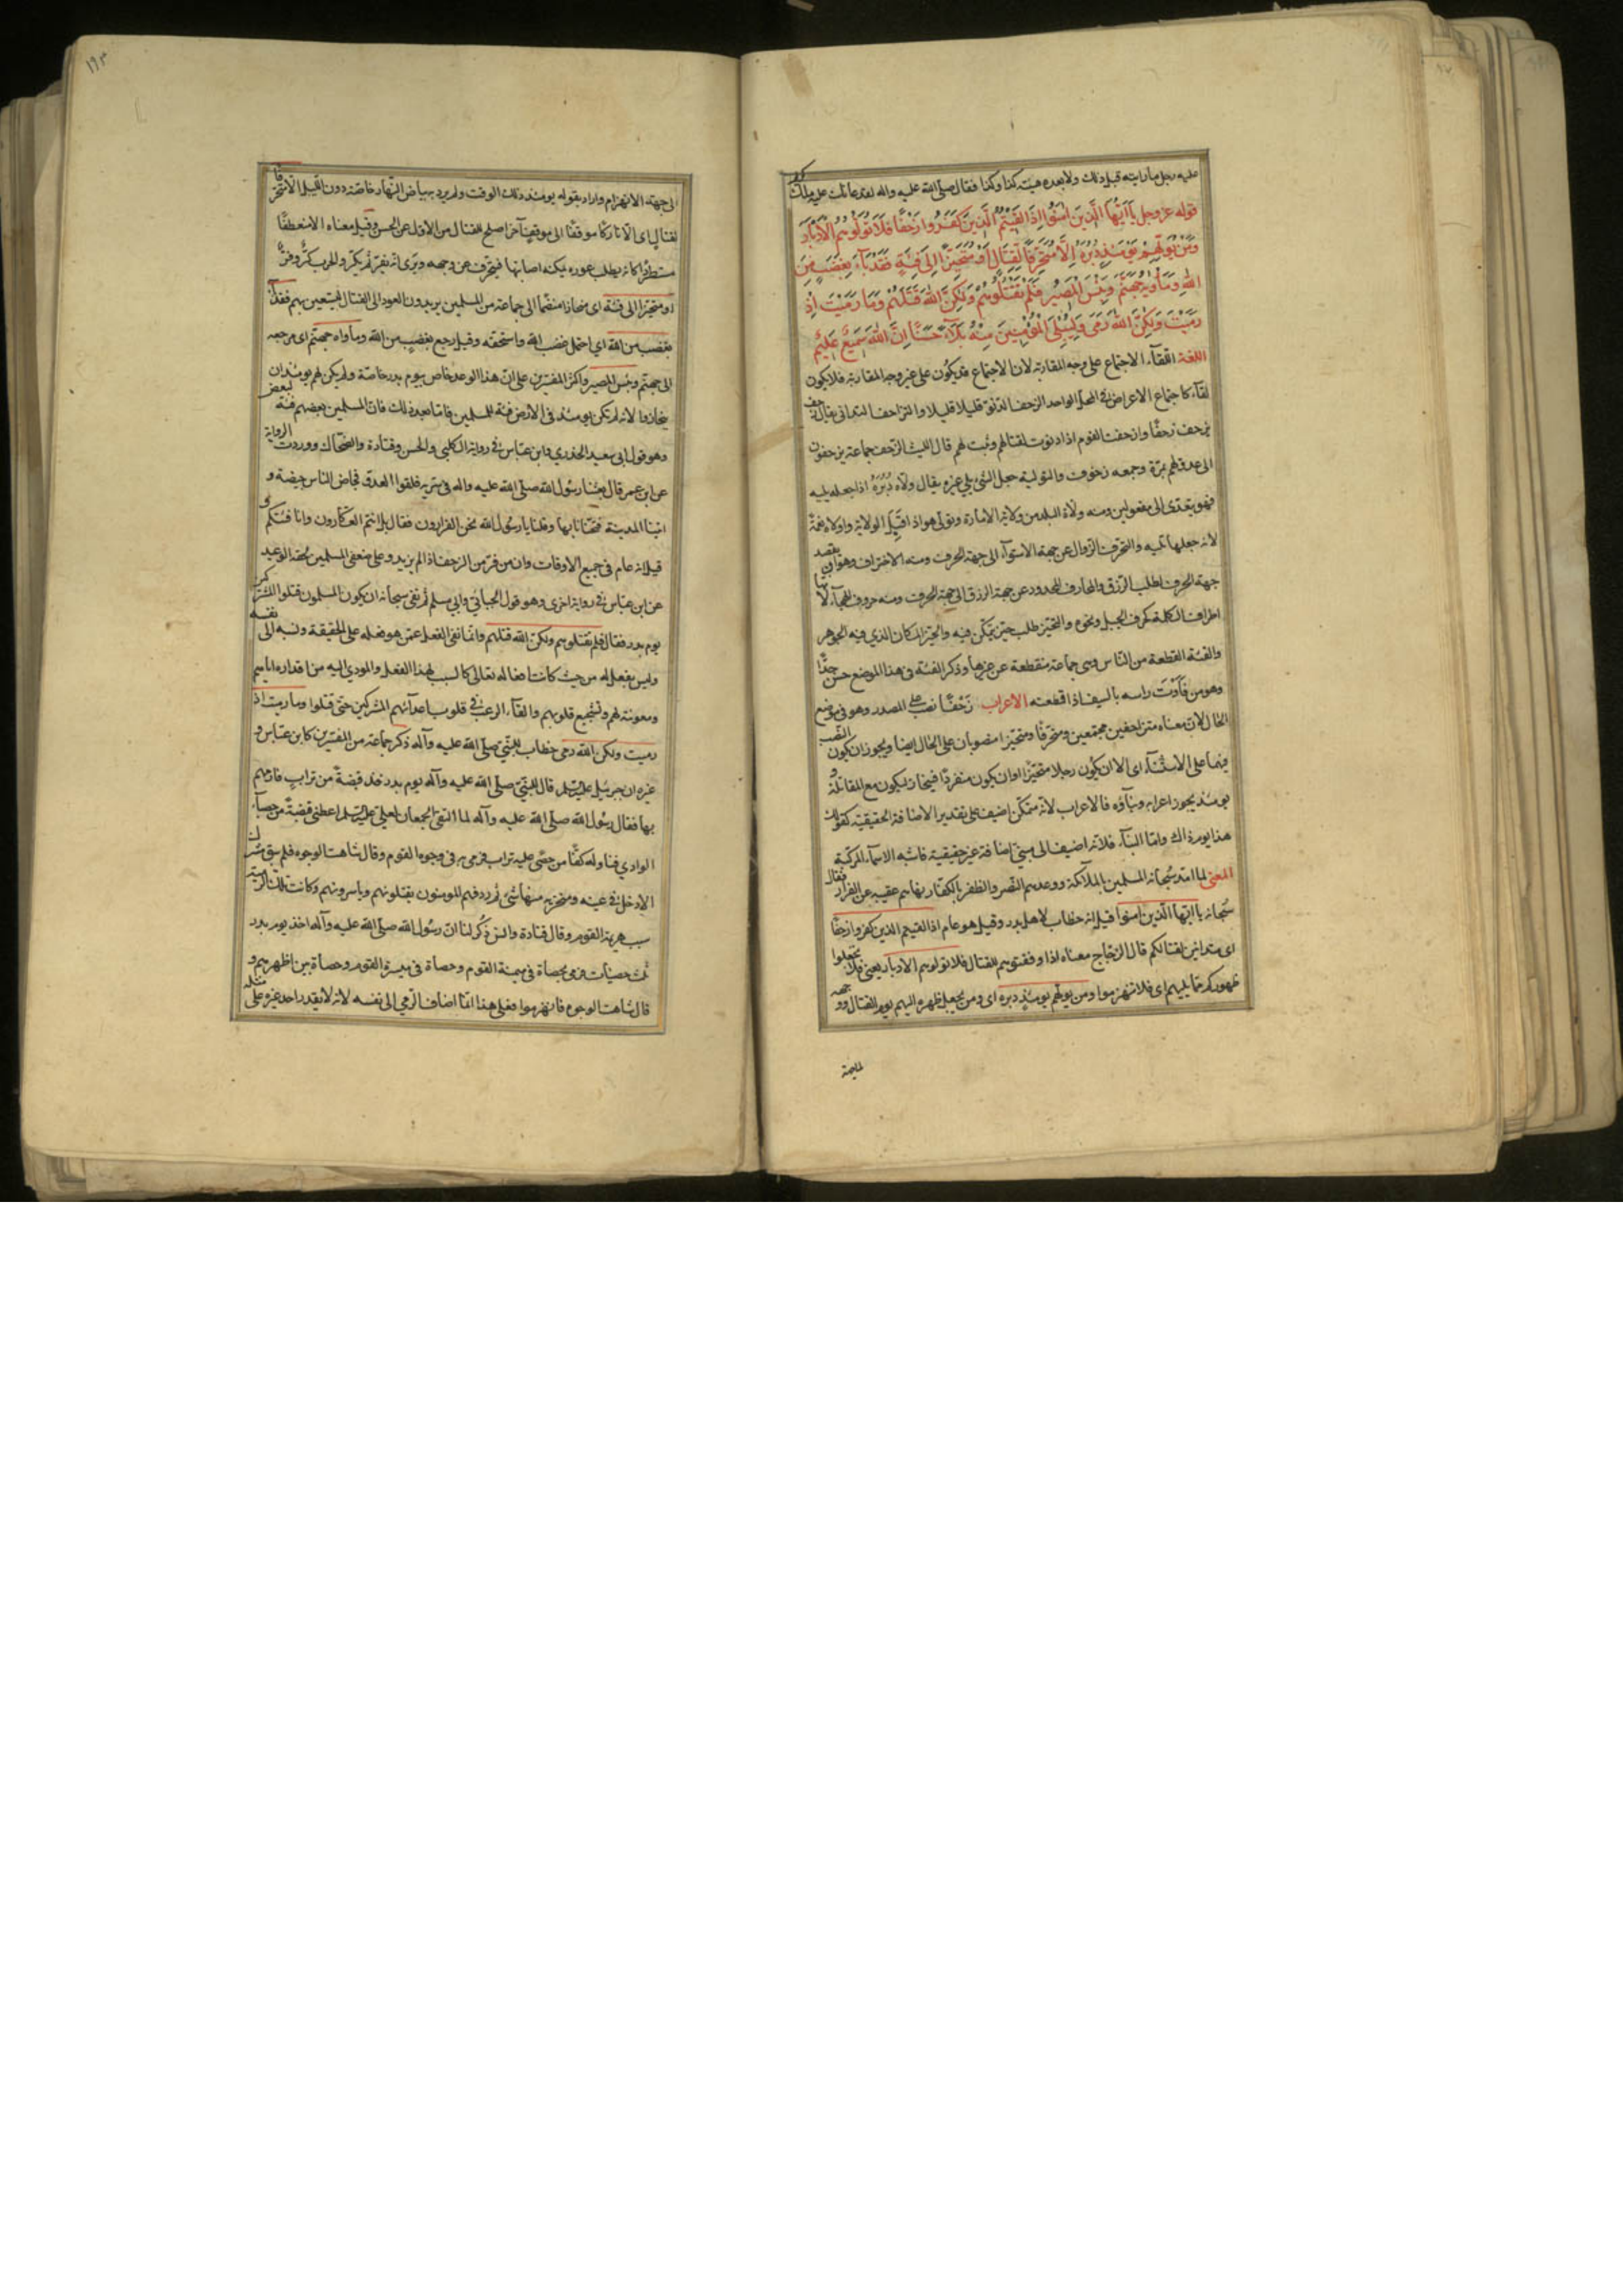 عليه رجل ما رايته قبل ذلك ولا بعده هيئته كذا وكذا فقال صلى الله عليه واله لقد عانك عليه ملك كريم
قوله عز وجل يَا اَيُّهَا الَّذِينَ اٰمَنُوا اِذَا لَقِيتُمُ الَّذِينَ كَفَرُوا زَحْفًا فَلَا تُوَلُّوهُمُ الْاَدْبَارَ
وَمَنْ يُوَلِّهِمْ يَوْمَئِذٍ دُبُرَهُ اِلَّا مُتَحَرِّفًا لِقِتَالٍ اَوْ مُتَحَيِّزًا اِلَى فِئَةٍ فَقَدْ بَآءَ بِغَضَبٍ مِنَ
اللّٰهِ وَمَأْوٰيهُ جَهَنَّمُ وَبِئْسَ الْمَصِيرُ فَلَمْ تَقْتُلُوهُمْ وَلٰكِنَّ اللّٰهَ قَتَلَهُمْ وَمَا رَمَيْتَ اِذْ
رَمَيْتَ وَلٰكِنَّ اللّٰهَ رَمَى وَلِيُبْلِيَ الْمُؤْمِنِينَ مِنْهُ بَلَآءً حَسَنًا اِنَّ اللّٰهَ سَمِيعٌ عَلِيمٌ
اللغة اللقآء الاجتماع على وجه المقاربة لان الاجتماع قد يكون على غير وجه المقاربة فلا يكون
لقآء كاجتماع الاعراض في المحل الواحد الزحف الدنو قليلا قليلا والتزاحف التداني يقال زحف
يزحف زحفًا وازحفت القوم اذا دنوت لقتالهم وثبت لهم قال الليث الزحف جماعة يزحفون
الى عدو لهم بمرة وجمعه زحوف والتولية جعل الشئ يلي غيره يقال ولاه دُبُرَهُ اذا جعله يليه
فهو يتعدى الى مفعولين ومنه ولاه البلد من ولاية الامارة وتولى هو اذا قبل الولاية واولاه نعمة
لانه جعلها تليه والتحرف الزوال عن جهة الاستوآء الى جهة الحرف ومنه الاحتراف وهو ان يقصد
جهة الحرف لطلب الرزق والمحارف المحدود عن جهة الرزق الى جهة الحرف ومنه حروف الهجآء لانها
اطراف الكلمة كحرف الجبل ونحوه والتحيز طلب حيز يتمكن فيه والحيز المكان الذي فيه الجوهر
والفئة القطعة من الناس وهي جماعة منقطعة عن غيرها وذكر الفئة في هذا الموضع حسن جدًّا
وهو من فَأَوْتُ راسه بالسيف اذا قطعته الاعراب زَحْفًا نصب على المصدر وهو في موضع
الحال لان معناه متزاحفين مجتمعين ومتحرفًا ومتحيزا منصوبان على الحال ايضا ويجوز ان يكون النصب
فيهما على الاستثنآء اى الا ان يكون رجلا متحيزا او ان يكون منفردًا فينحاز ليكون مع المقاتلة و
يومئذ يجوز اعرابه وبنآؤه فالاعراب لانه متمكن اضيف على تقدير الاضافة الحقيقية كقولك
هذا يوم ذاك واما البنآء فلانه اضيف الى مبنى اضافة غير حقيقية فاشبه الاسمآء المركبة
المعنى لما امد سبحانه المسلمين بالملآئكة ووعدهم النصر والظفر بالكفار نهاهم عقيبه عن الفرار فقال
سبحانه يا ايها الذين امنوا قيل انه خطاب لاهل بدر وقيل هو عام اذا لقيتم الذين كفروا زحفًا
اى متدانين لقتالكم قال الزجاج معناه اذا وقفتموهم للقتال فلا تولوهم الادبار يعنى فلا تجعلوا
ظهوركم مما يليهم اى فلا تنهزموا ومن يولهم يومئذ دبره اى ومن يجعل ظهره اليهم يوم القتال ووجهه
١٩٣
الى جهة الانهزام واراد بقوله يومئذ ذلك الوقت ولم يرد بياض النهار خاصة دون الليل الا متحرفًا
لقتال اى الا تاركا موقفًا الى موقف آخر اصلح للقتال من الاول عن الحسن وقيل معناه الا منعطفًا
مستطردًا كانه يطلب عورة يمكنه اصابتها فيتحرف عن وجهه ويرى انه يفر ثم يكر والحرب كرٌّ وفرٌّ
او متحيزا الى فئة اى منحازا منضما الى جماعة من المسلمين يريدون العود الى القتال ليستعين بهم فقد بآء
بغضب من الله اى احتمل غضب الله واستحقه وقيل رجع بغضب من الله وماواه جهنم اى مرجعه
الى جهنم وبئس المصير واكثر المفسرين على ان هذا الوعيد خاص بيوم بدر خاصة ولم يكن لهم يومئذ ان
ينحازوا لانه لم تكن يومئذ في الارض فئة للمسلمين فاما بعد ذلك فان المسلمين بعضهم فئة لبعض
وهو قول ابى سعيد الخدري وابن عباس في رواية الكلبى والحسن وقتادة والضحاك ووردت الرواية
عن ابن عمر قال بعثنا رسول الله صلى الله عليه واله في سرية فلقوا العدو فجاض الناس جيضة و
اتينا المدينة فتخبانا بها وقلنا يا رسول الله نحن الفرارون فقال بل انتم العكارون وانا فئتكم و
قيل انه عام في جميع الاوقات وان من فر من الزحف اذا لم يزيدوا على ضعفى المسلمين لحقه الوعيد
عن ابن عباس في رواية اخرى وهو قول الجبائي وابي مسلم ثم نفى سبحانه ان يكون المسلمون قتلوا المشركين
يوم بدر فقال فلم تقتلوهم ولكن الله قتلهم وانما نفى الفعل عمن هو فعله على الحقيقة ونسبه الى نفسه
وليس بفعل له من حيث كانت افعاله تعالى كالسبب لهذا الفعل والمودي اليه من اقداره اياهم
ومعونته لهم وتشجيع قلوبهم والقآء الرعب في قلوب اعدآئهم المشركين حتى قتلوا وما رميت اذ
رميت ولكن الله رمى خطاب للنبي صلى الله عليه وآله ذكر جماعة من المفسرين كابن عباس و
غيره ان جبرئيل عليه السلم قال للنبي صلى الله عليه وآله يوم بدر خذ قبضة من تراب فارمهم
بها فقال رسول الله صلى الله عليه وآله لما التقى الجمعان لعلي عليه السلم اعطنى قبضة من حصبآء
الوادي فناوله كفًّا من حصى عليه تراب فرمى به في وجوه القوم وقال شاهت الوجوه فلم يبق مشرك
الا دخل في عينه ومنخريه منها شئ ثم ردفهم المومنون يقتلونهم وياسرونهم وكانت تلك الرمية
سبب هزيمة القوم وقال قتادة وانس ذُكر لنا ان رسول الله صلى الله عليه وآله اخذ يوم بدر
ثلث حصيات فرمى بحصاة في ميمنة القوم وحصاة في ميسرة القوم وحصاة بين اظهرهم و
قال شاهت الوجوه فانهزموا فعلى هذا انما اضاف الرمي الى نفسه لانه لا يقدر احد غيره على مثله